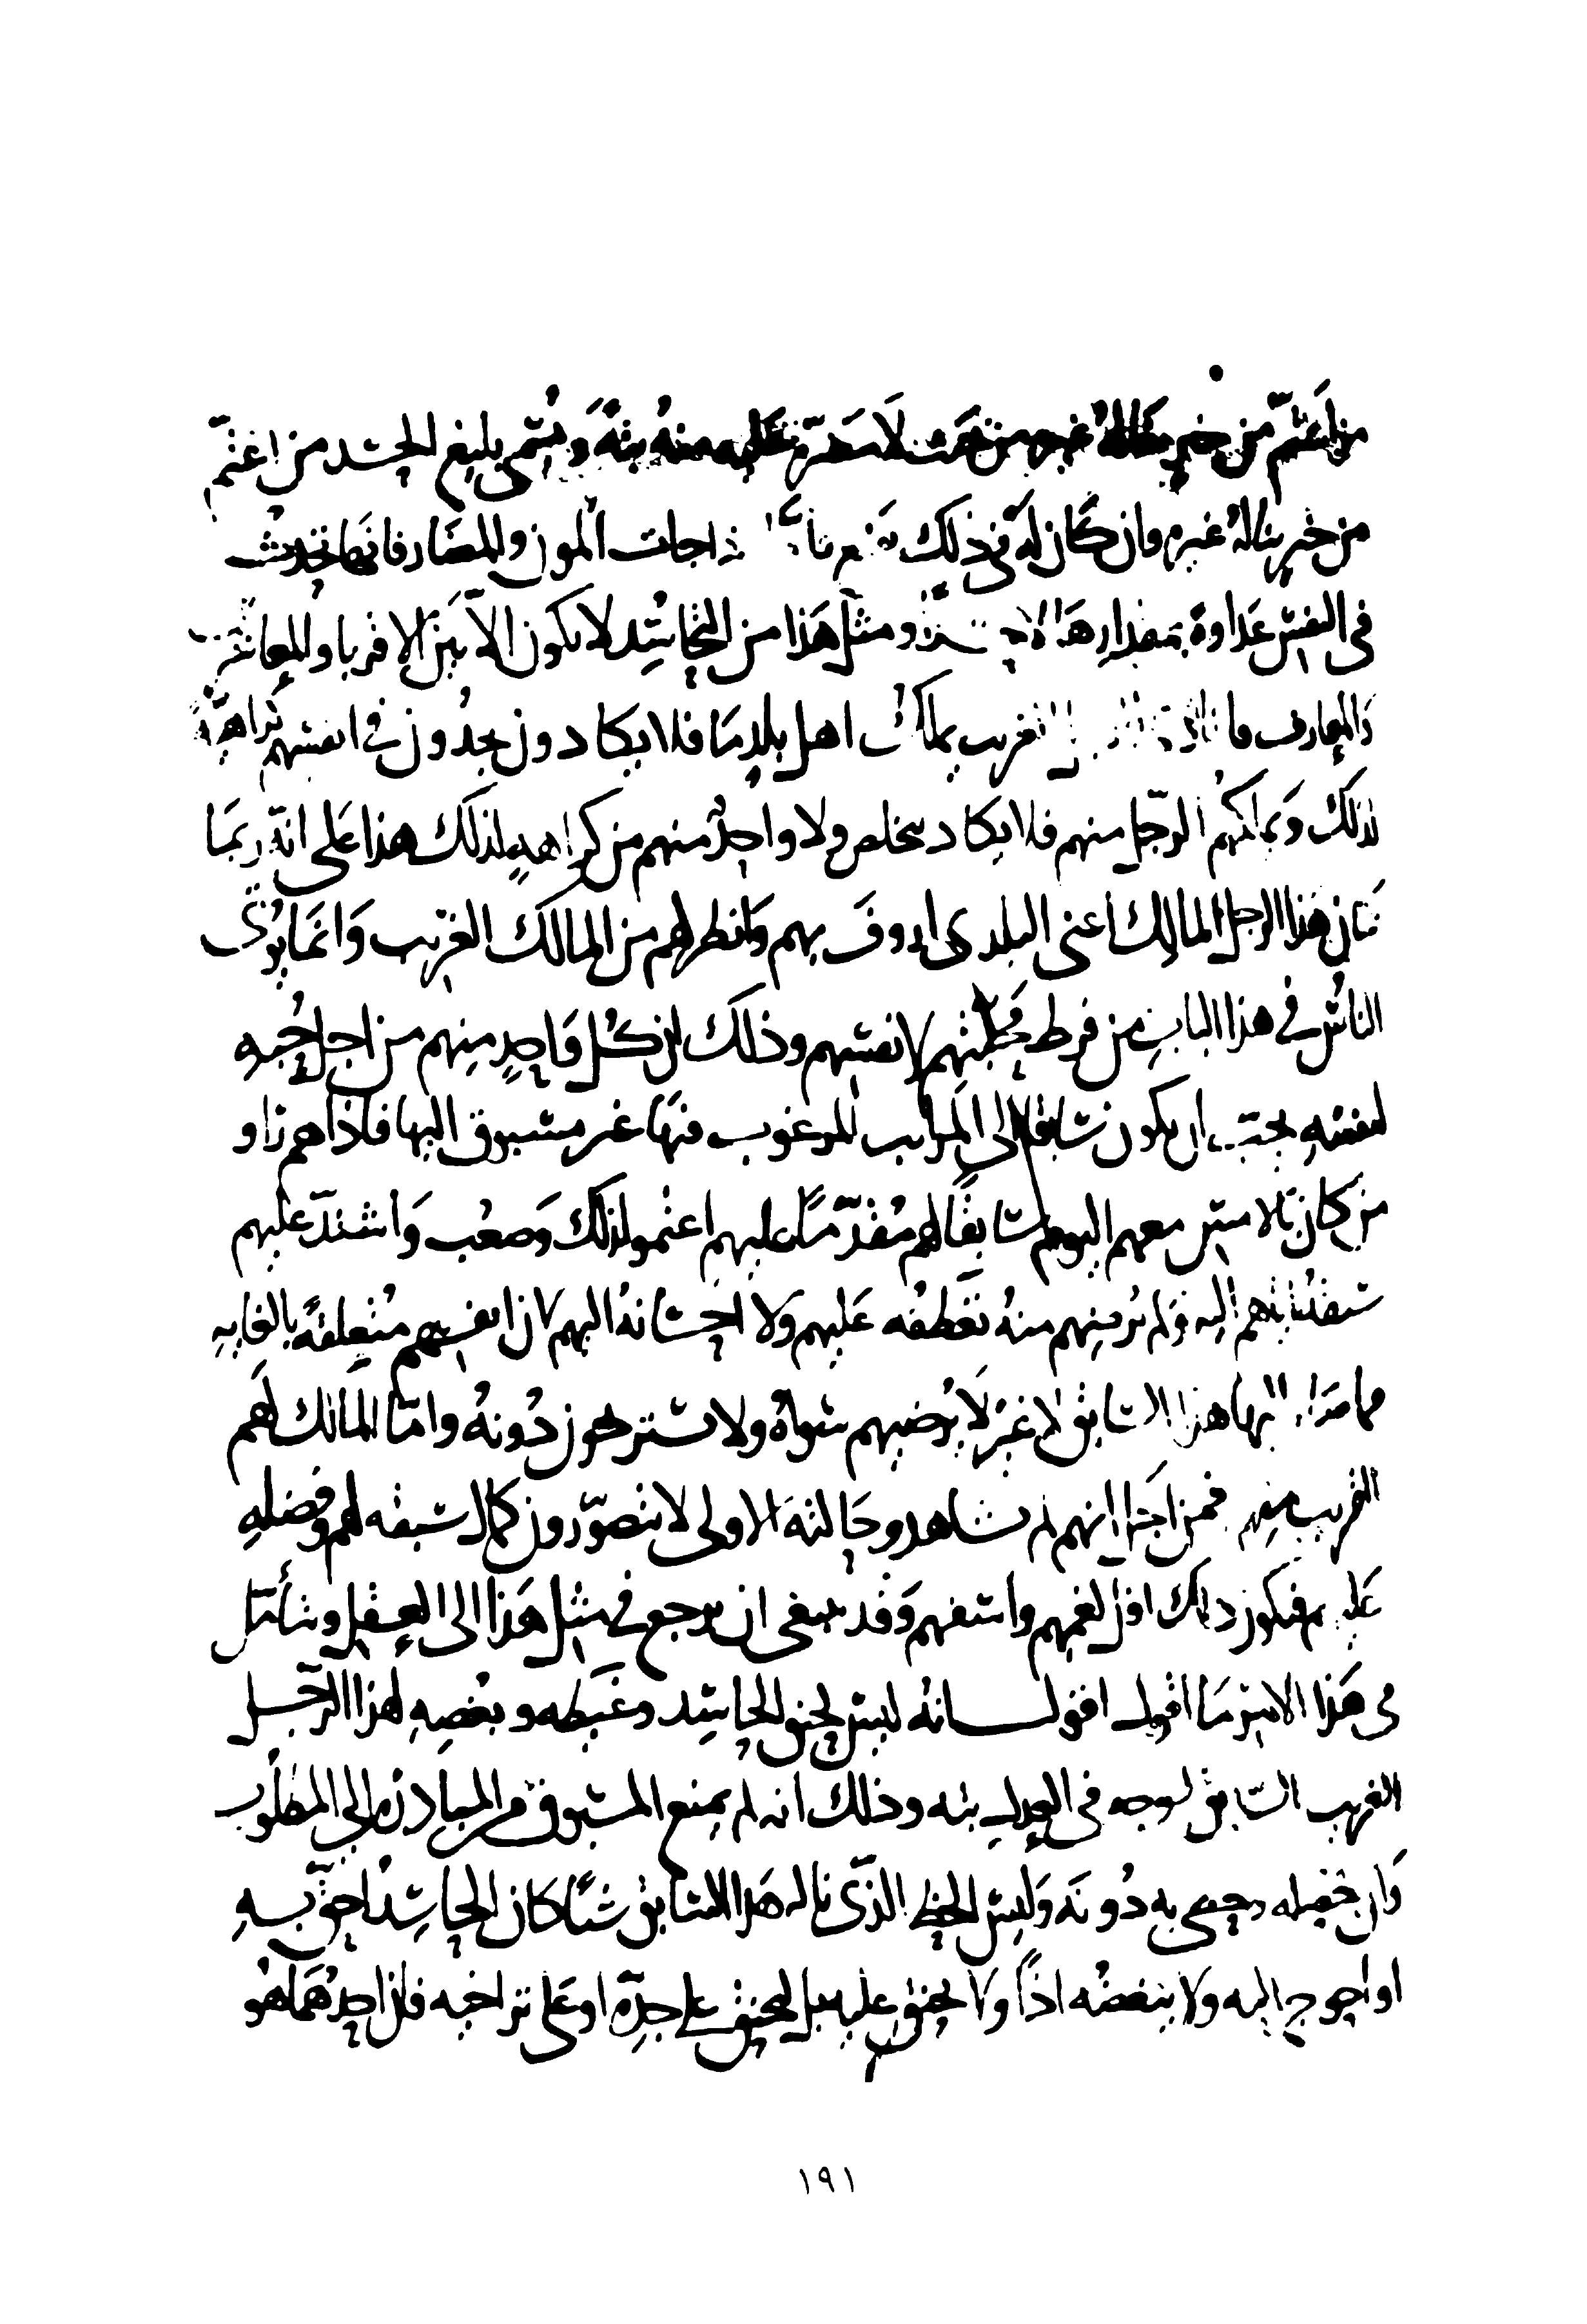 من اغتمّ من خير يناله غيره من حيث لا مضرّة عليه منه بتةً ويُسمى بليغ الحسد من اغتمّ
من خير يناله غيره وان كان له فى ذلك اجات المون والمضار فانها تحدث
فى النفس عداوة بمقدارها ومثل هذا من التحاسد لا يكون الا بين الاقربا والمعاشرين
والمعارف فا الغريب يملك اهل بلد ما فلا يكادون يجدون فى انفسهم كراهةً
لذلك ويملكهم الرّجل منهم فلا يكاد يتخلص ولا واحد منهم من كراهيه لذلك هذا على انّه ربما
كان هذا الرجل المالك اعنى البلدى اروف بهم وانظر لهم من المالك الغريب وانما يؤتى
الناس فى هذا الباب من فرط محبتهم لانفسهم وذلك ان كل واحدٍ منهم من اجل حُبه
لنفسه يحب ان يكون سابقا الى المراتب المرغوب فيها غير مسبوق اليها فاذا هم راو
من كان بالامس معهم اليوم سابقًا لهم مُقدّمًا عليهم اغتمو لذلك وصعُب واشتدّ عليهم
سبقه اياهم اليه ولم يُرضهم منه تعطفه عليهم ولا احسانهُ اليهم لان انفسهم مُتعلقةً بالغايه
مما صار اليها هذا السابق لا غيرُ لا يُرضيهم سواهُ ولا يستريحون دُونهُ وامّا المالك لهم
الغريب منهم فمن اجل انهم لم يشاهدو حالته الاولى لا يتصوّرون كمال سبقه لهم وفضلهِ
عليهم فيكون ذلك اقل لغمهم واسفهم وقد ينبغى ان يرجع فى مثل هذا الى العقل ويتأمّل
فى هذا الامر ما اقول اقول انه ليس لحنق الحاسد وغيظه وبغضهِ لهذا الرّجل
الغريب السّابق لوجه فى العدل بته وذلك انه لم يمنع المسبوق من المبادره الى المطلوب
وان حصله وحظى به دُونه وليس الحظ الذّى ناله هذا السّابق شيئًا كان الحاسِدُ احقّ بهِ
او احوج اليه ولا يبغضُه اذًا ولا يحنق عليه بل ليحنق على جدّه او على تراخيه فانّ احدُهما هو
١٩١